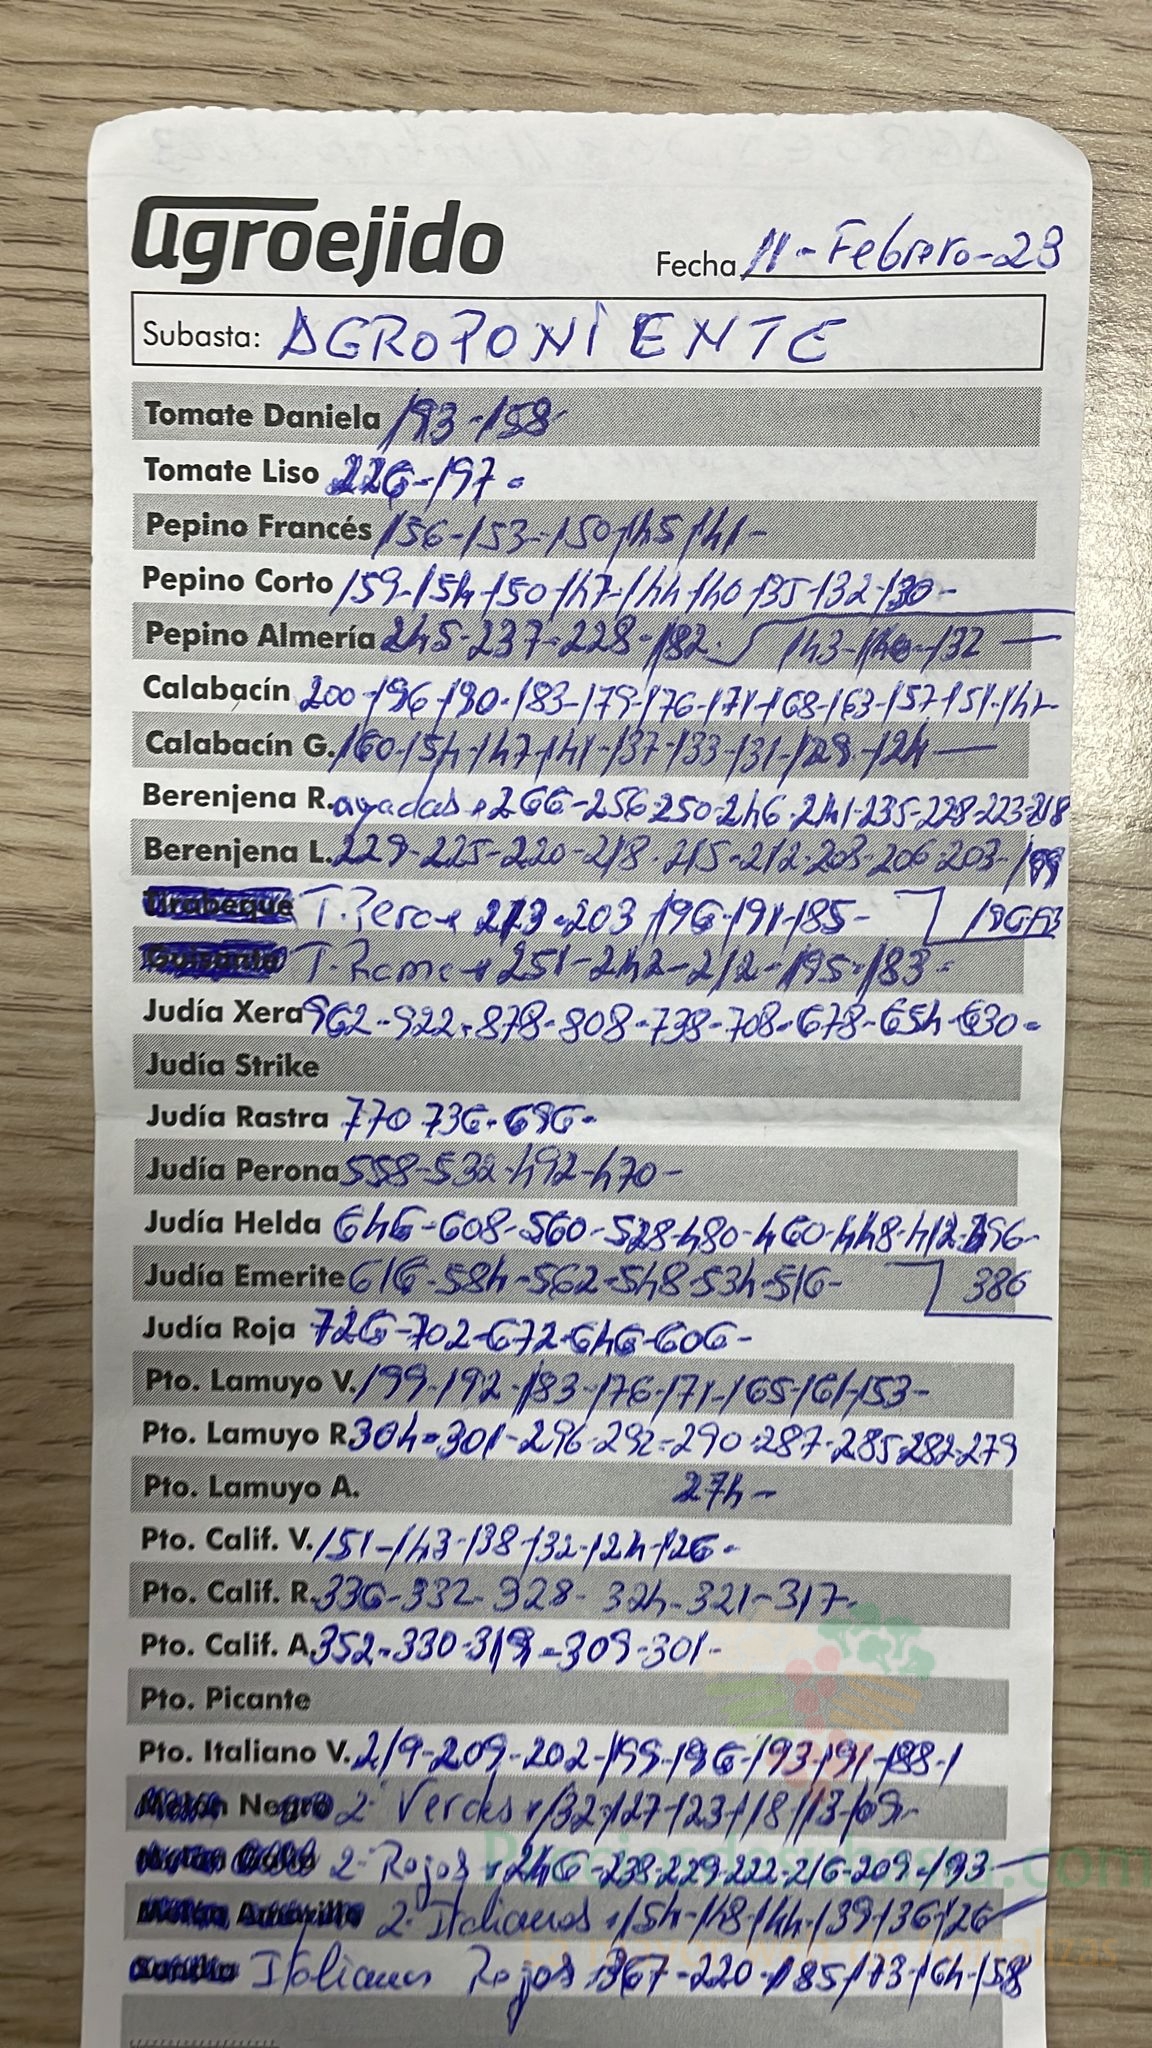 agroejido
Fecha 11-Febrero-23
Subasta: AGROPONIENTE
Tomate Daniela 193-158-
Tomate Liso 226-197-
Pepino Francés 156-153-150-145-141-
Pepino Corto 159-154-150-147-144-140-135-132-130-
Pepino Almería 245-237-228-182. 143-140-132
Calabacín 200-196-190-183-179-176-171-168-163-157-151-142-
Calabacín G. 160-154-147-141-137-133-131-128-124-
Berenjena R. 266-256-250-246-241-235-228-223-218
Berenjena L. 229-225-220-218-215-212-208-206-203-199
T. Pera 213-203-196-191-185-
T. Rama 251-242-212-195-183-
Judía Xera 962-922-878-808-738-708-678-654-630-
Judía Strike
Judía Rastra 770-736-686-
Judía Perona 558-532-492-470-
Judía Helda 646-608-560-528-480-460-448-412-396-
Judía Emerite 616-584-562-548-534-516- 386
Judía Roja 726-702-672-646-606-
Pto. Lamuyo V. 199-192-183-176-171-165-161-153-
Pto. Lamuyo R. 304-301-296-292-290-287-285-282-279
Pto. Lamuyo A. 274-
Pto. Calif. V. 151-143-138-132-124-126-
Pto. Calif. R. 336-332-328-324-321-317-
Pto. Calif. A. 352-330-319-309-301-
Pto. Picante
Pto. Italiano V. 219-209-202-199-196-193-191-188-1
Negro 2ª Verdes 132-127-123-118-113-109-
2ª Rojos 246-238-229-222-216-209-193-
2ª Italianos 154-148-144-139-136-126
Italianos Rojos 367-220-185-173-164-158